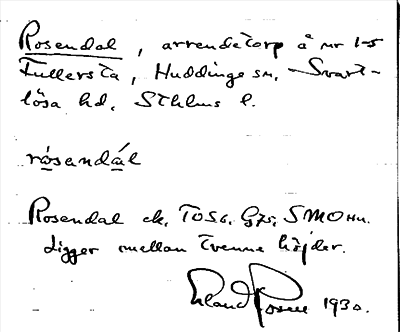 Rosendal, arrendetorp å nr 1-5
Fullersta, Huddinge sn, Svart-
lösa hd, Sthlms l.
rosendál
Rosendal ek. TOSG. G75, SMOHu.
Ligger mellan tvenne höjder.
Erland Rosell 1930.